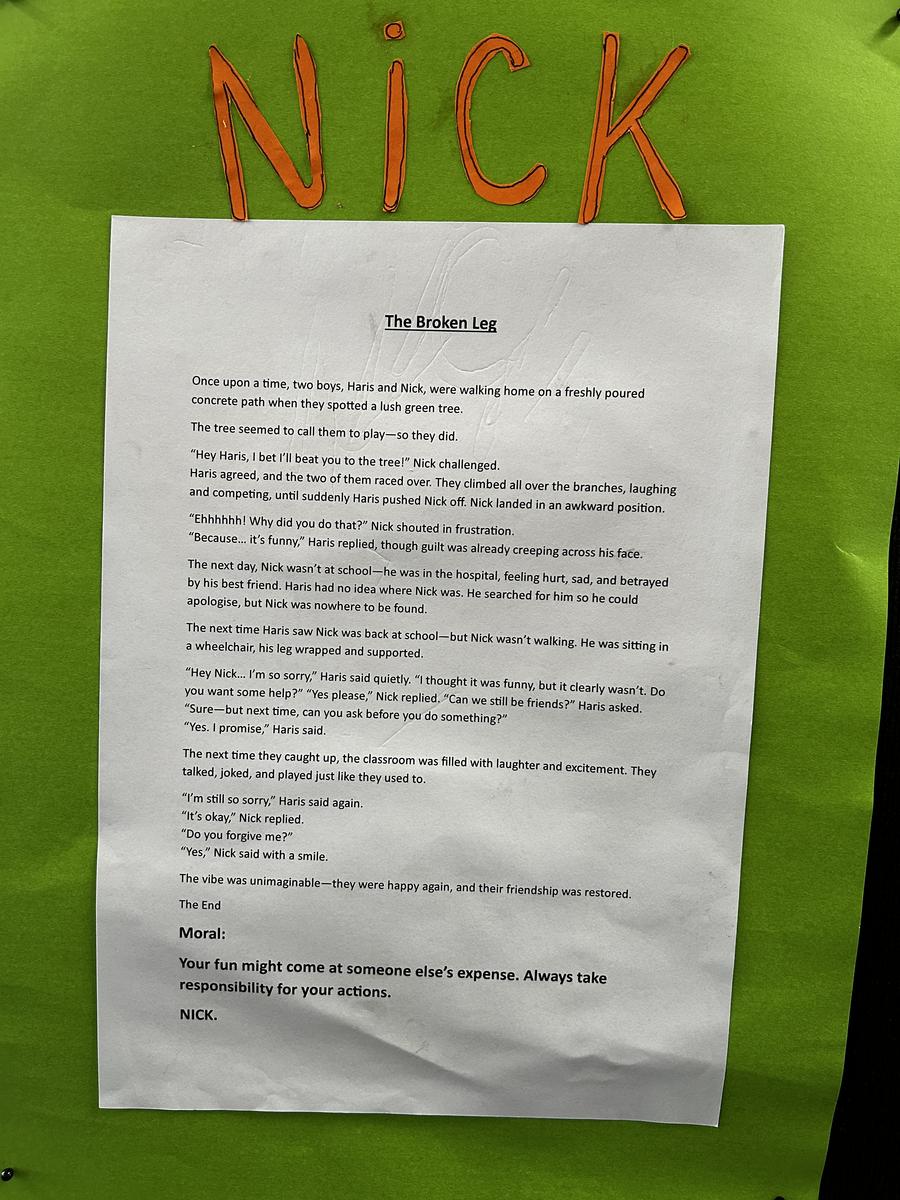 NiCK
The Broken Leg
Once upon a time, two boys, Haris and Nick, were walking home on a freshly poured
concrete path when they spotted a lush green tree.
The tree seemed to call them to play—so they did.
“Hey Haris, I bet I’ll beat you to the tree!” Nick challenged.
Haris agreed, and the two of them raced over. They climbed all over the branches, laughing
and competing, until suddenly Haris pushed Nick off. Nick landed in an awkward position.
“Ehhhhhh! Why did you do that?” Nick shouted in frustration.
“Because… it’s funny,” Haris replied, though guilt was already creeping across his face.
The next day, Nick wasn’t at school—he was in the hospital, feeling hurt, sad, and betrayed
by his best friend. Haris had no idea where Nick was. He searched for him so he could
apologise, but Nick was nowhere to be found.
The next time Haris saw Nick was back at school—but Nick wasn’t walking. He was sitting in
a wheelchair, his leg wrapped and supported.
“Hey Nick… I’m so sorry,” Haris said quietly. “I thought it was funny, but it clearly wasn’t. Do
you want some help?” “Yes please,” Nick replied. “Can we still be friends?” Haris asked.
“Sure—but next time, can you ask before you do something?”
“Yes. I promise,” Haris said.
The next time they caught up, the classroom was filled with laughter and excitement. They
talked, joked, and played just like they used to.
“I’m still so sorry,” Haris said again.
“It’s okay,” Nick replied.
“Do you forgive me?”
“Yes,” Nick said with a smile.
The vibe was unimaginable—they were happy again, and their friendship was restored.
The End
Moral:
Your fun might come at someone else’s expense. Always take
responsibility for your actions.
NICK.